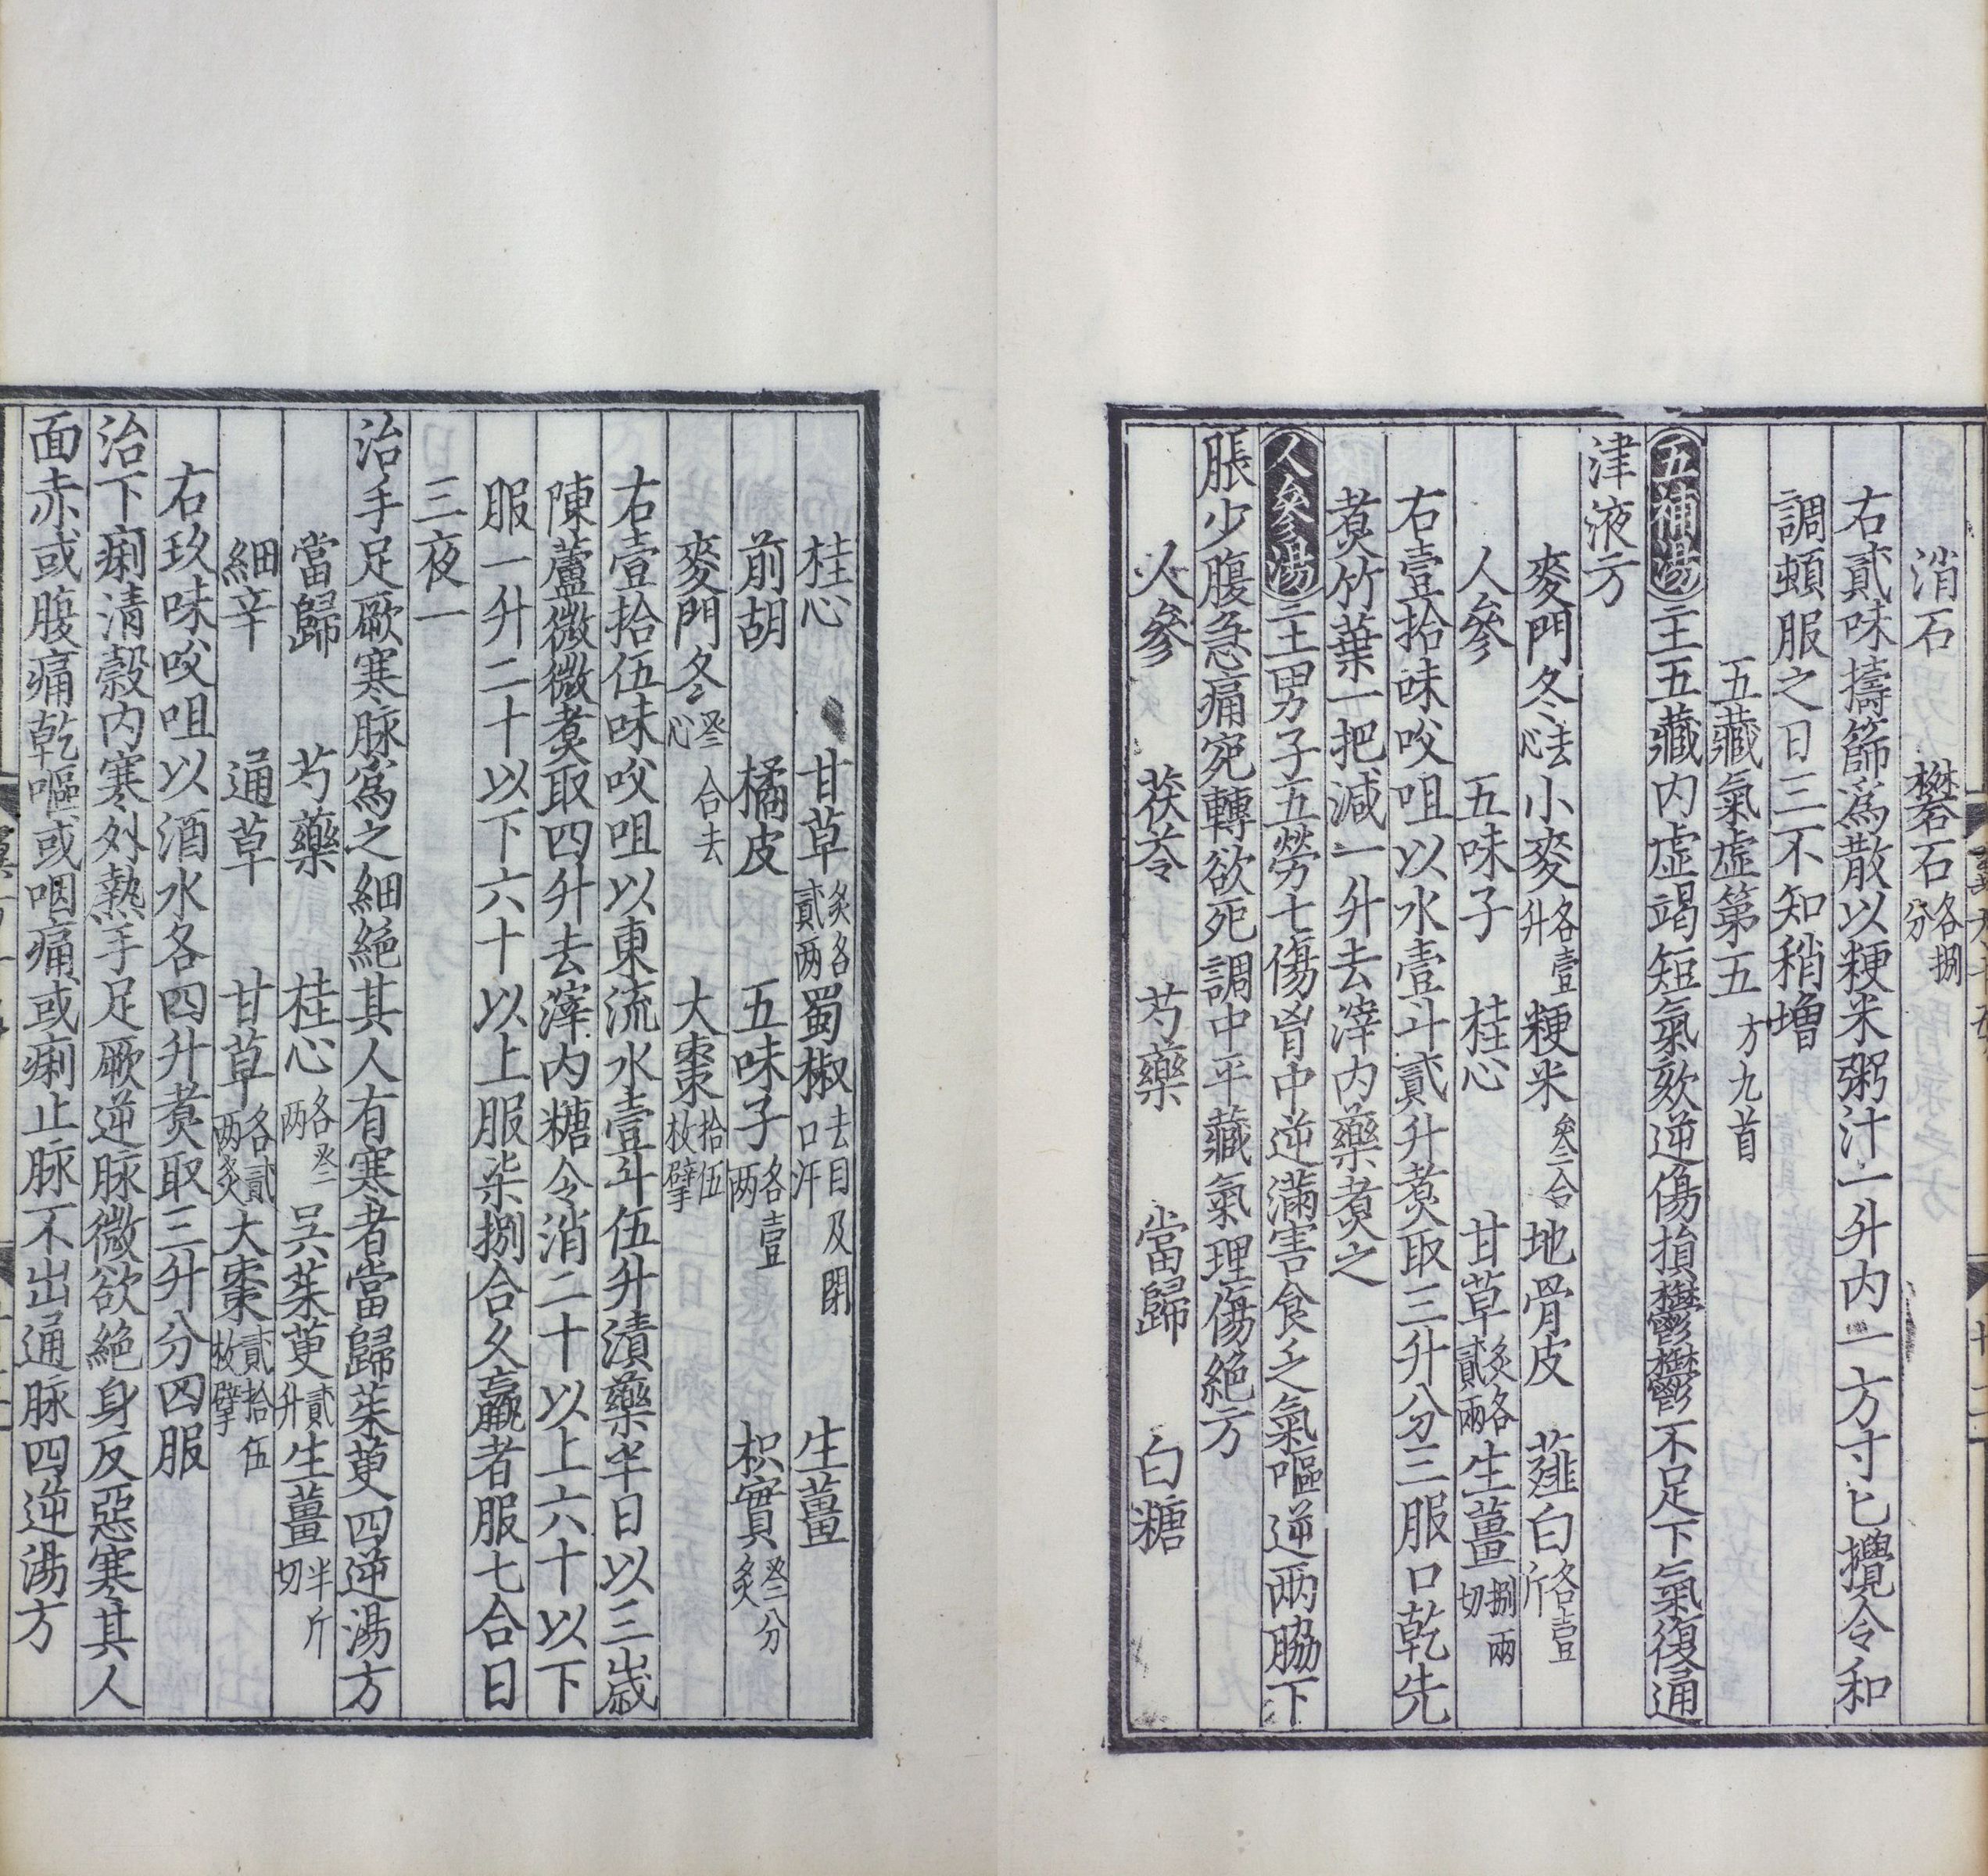 消石　礬石各捌分
右貳味擣篩為散以粳米粥汁一升内一方寸匕攪令和
調頓服之日三不知稍增
五藏氣虛第五方九首
五補湯 主五藏内虛竭短氣欬逆傷損鬱鬱不足下氣復通
津液方
麥門冬去心　小麥各壹升　粳米叁合　地骨皮　薤白各壹斤
人參　五味子　桂心　甘草炙各貳兩　生薑切捌兩
右壹拾味㕮咀以水壹斗貳升煑取三升分三服口乾先
煑竹葉一把減一升去滓内藥煑之
人參湯 主男子五勞七傷胷中逆滿害食乏氣嘔逆兩脇下
脹少腹急痛宛轉欲死調中平藏氣理傷絶方
人參　茯苓　芍藥　當歸　白糖
桂心　甘草炙各貳两　蜀椒去目及閉口汗　生薑
前胡　橘皮　五味子各壹两　枳實叁分炙
麥門冬叁合去心　大棗拾伍枚擘
右壹拾伍味㕮咀以東流水壹斗伍升漬藥半日以三歲
陳蘆微微煑取四升去滓内糖令消二十以上六十以下
服一升二十以下六十以上服柒捌合久羸者服七合日
三夜一
治手足厥寒脉為之細絶其人有寒者當歸茱萸四逆湯方
當歸　芍藥　桂心各叁两　吳茱萸貳升　生薑半斤切
細辛　通草　甘草各貳两炙　大棗貳拾伍枚擘
右玖味㕮咀以酒水各四升煑取三升分四服
治下痢清穀内寒外熱手足厥逆脉微欲絶身反惡寒其人
面赤或腹痛乾嘔或咽痛或痢止脉不出通脉四逆湯方